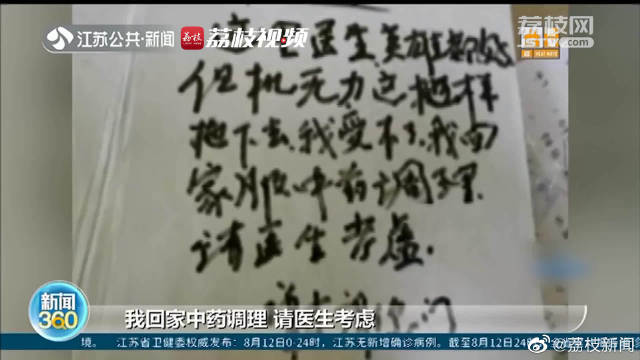 江苏公共·新闻 荔枝 荔枝视频 荔枝网
医生英雄都
但机无力这拖样
拖下去我受不了我回
家服中药调理
请医生考虑.
新闻360
我回家中药调理 请医生考虑
境。 江苏省卫健委权威发布：8月12日0-24时，江苏无新增确诊病例。截至8月12日24时
@荔枝新闻